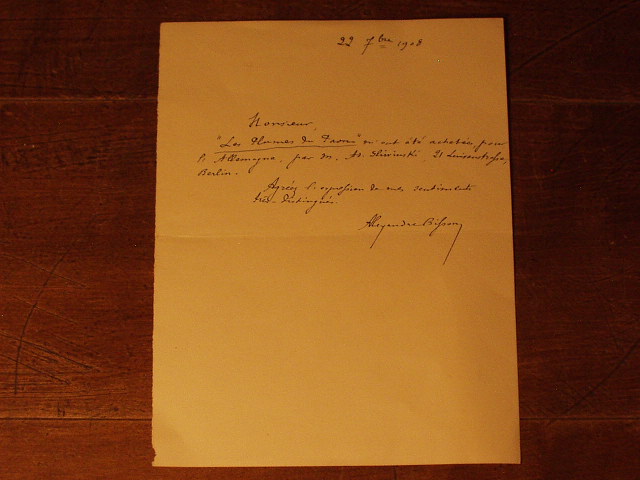 22 7bre 1908
Monsieur,
"Les Plumes du Paon" m'ont été achetées, pour
l'Allemagne, par M. Ad. Sliwinski, 21 Luisenstrasse,
Berlin.
Agréez l'expression de mes sentiments
très distingués
Alexandre Bisson